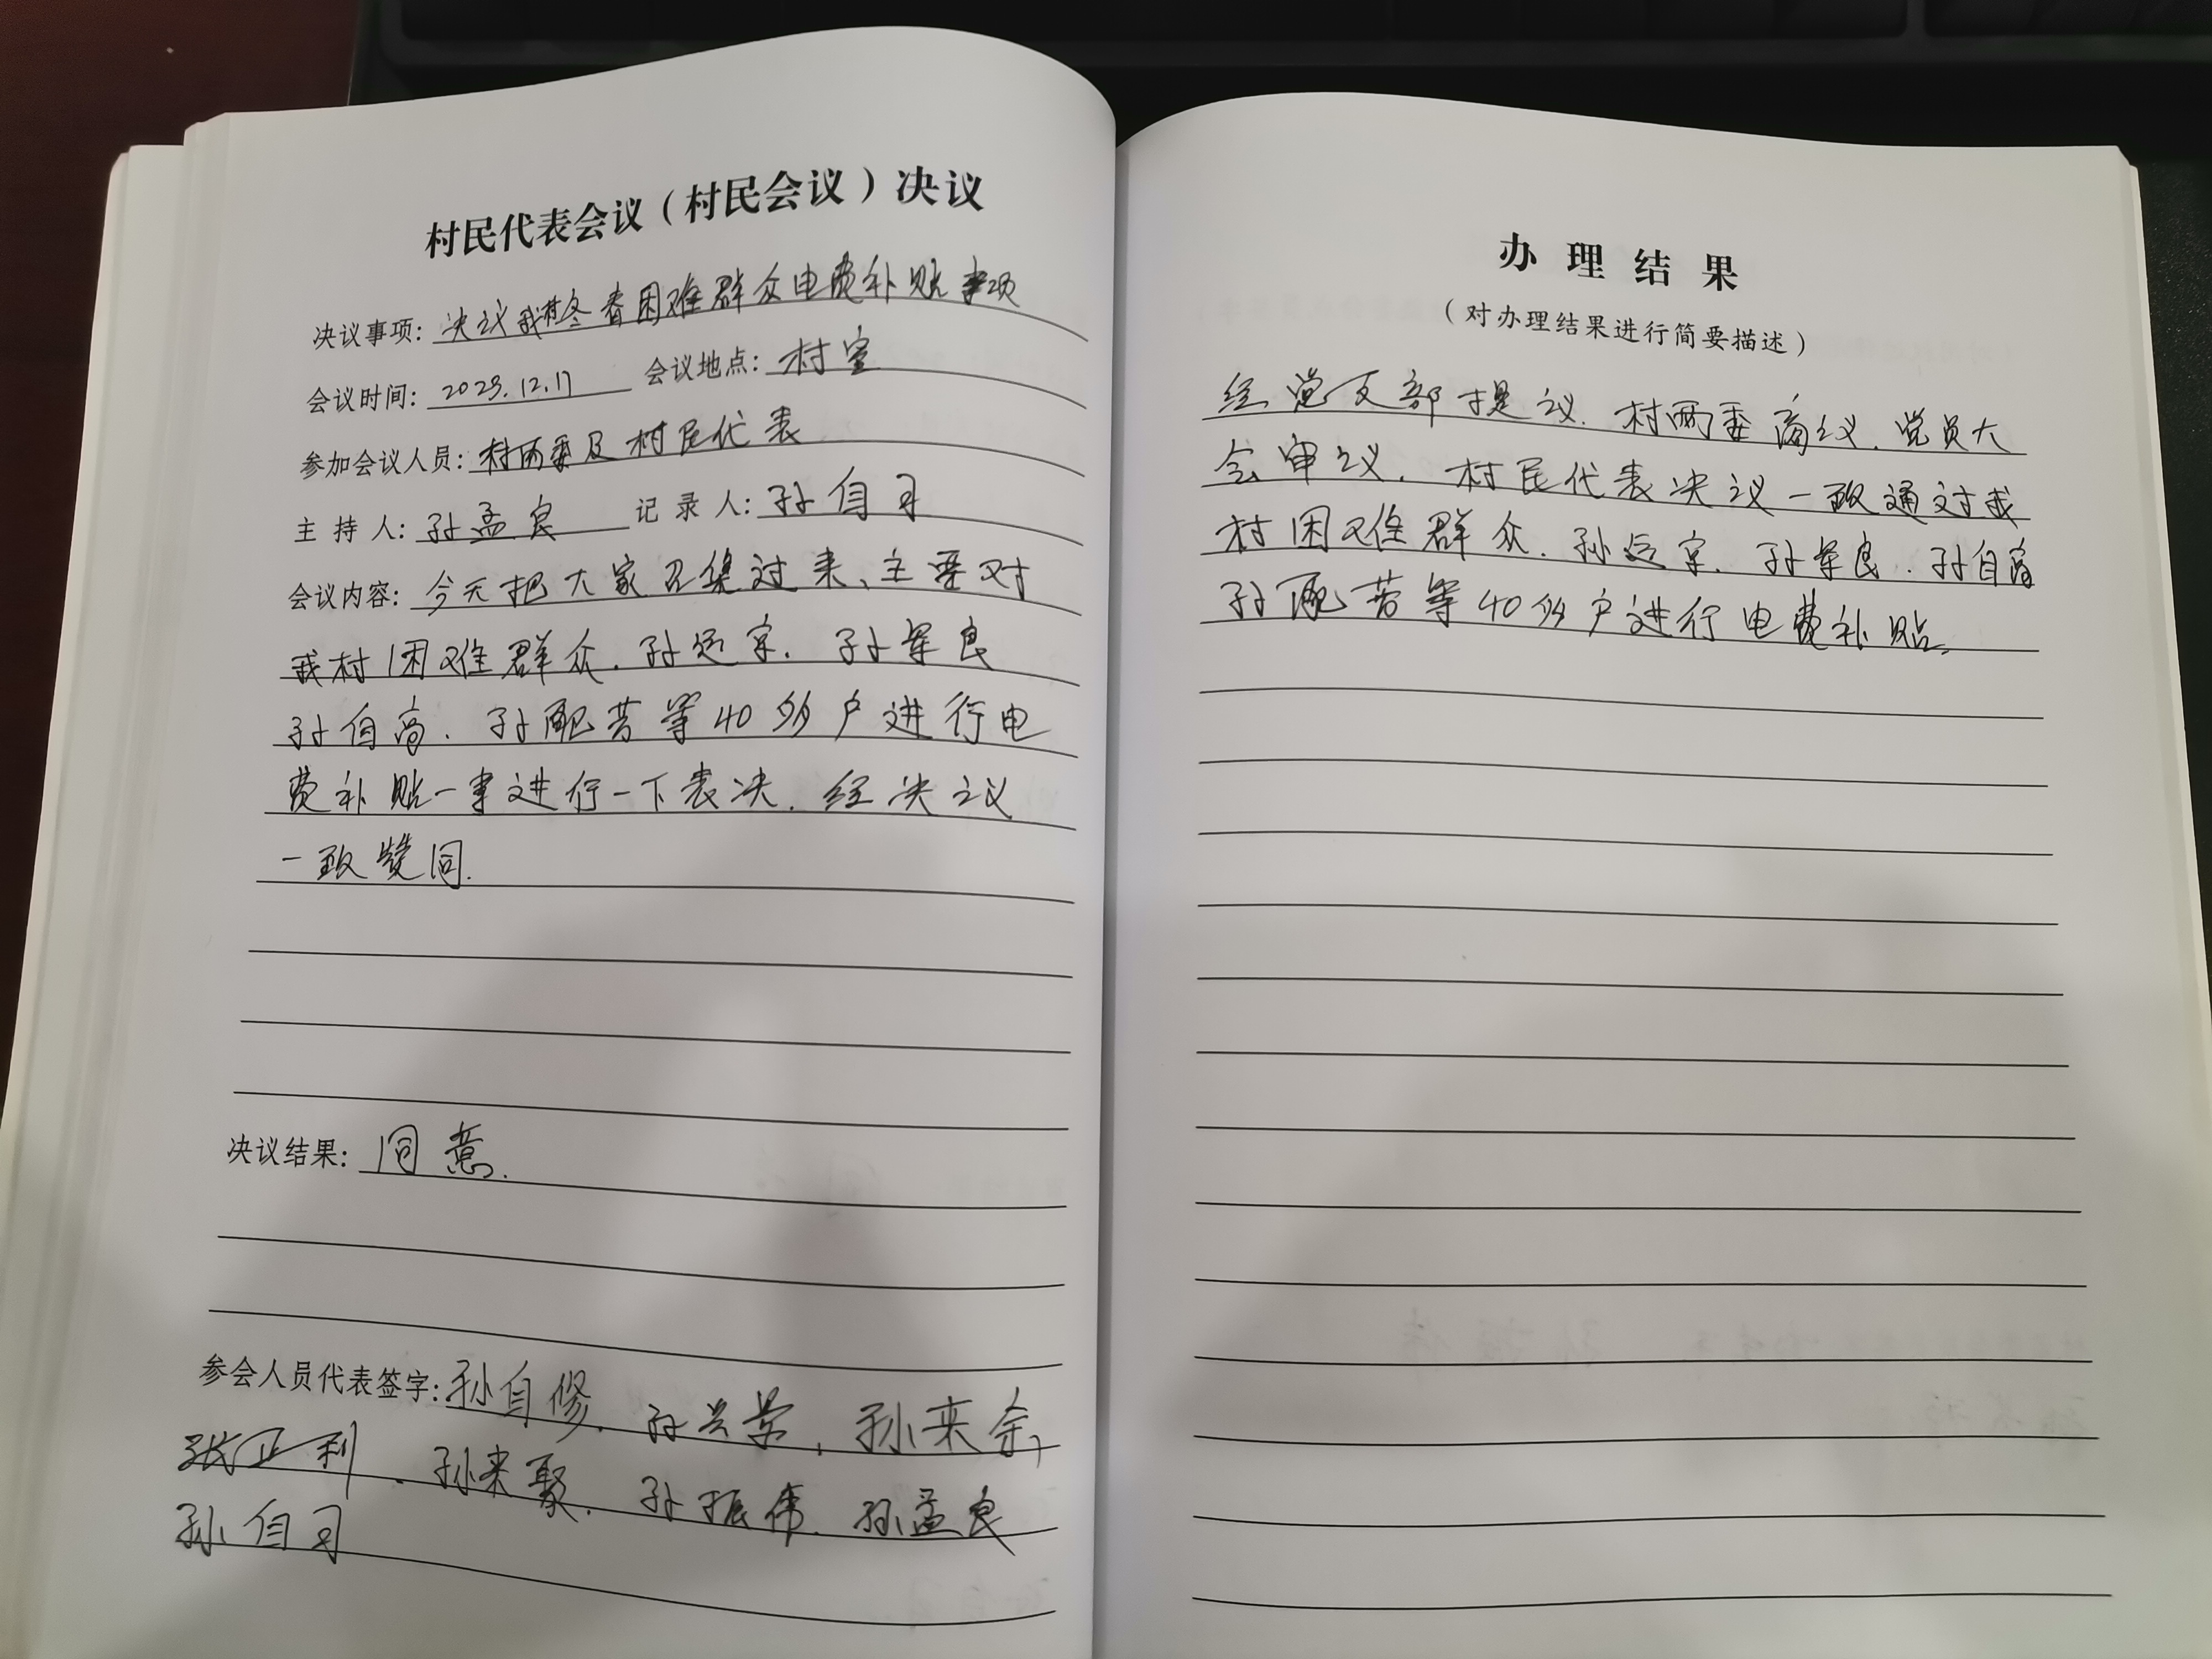 村民代表会议（村民会议）决议
决议事项：决议我村冬春困难群众电费补贴事项
会议时间：2023.12.17 会议地点：村室
参加会议人员：村两委及村民代表
主持人：孙孟良 记录人：孙自习
会议内容：今天把大家召集过来、主要对
我村困难群众.孙运京.孙军良
孙自高.孙配芳等40多户进行电
费补贴一事进行一下表决.经决议
一致赞同.
决议结果：同意.
参会人员代表签字：孙自修.孙兴荣，孙来余，
张正利.孙来聚.孙振伟.孙孟良
孙自习
办理结果
（对办理结果进行简要描述）
经党支部提议.村两委商议.党员大
会审议.村民代表决议一致通过我
村困难群众.孙运京.孙军良.孙自高
孙配芳等40多户进行电费补贴.